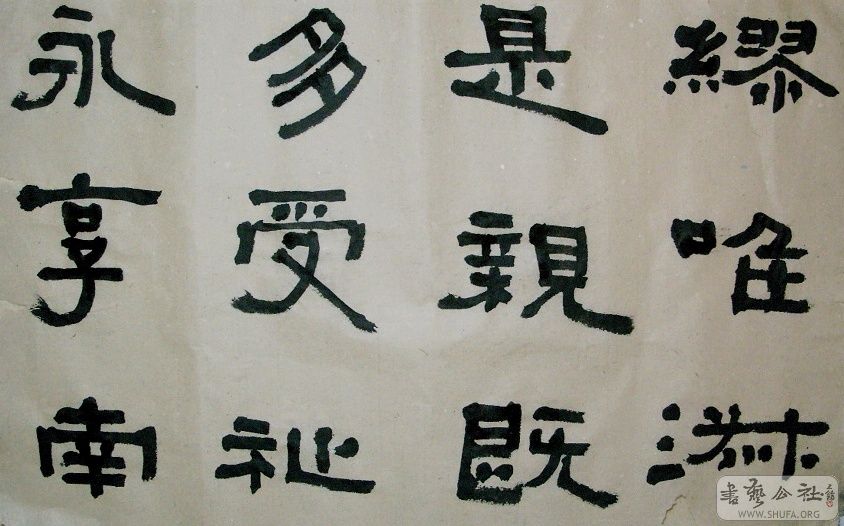 繆唯淑
是親既
多受祉
永享南
書藝公社
WWW.SHUFA.ORG